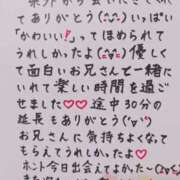 てありがとう(^-^)いっぱい
「かわいい！」ってほめられて
うれしかったよ(^^)優しく
て面白いお兄さんと一緒に
いれて楽しい時間を過ご
せました♡♡途中30分の
延長もありがとう(^▽^)
お兄さんに気持ちよくなって
もらえてうれしかったよ♡
ホント今日出会えてよかた〜